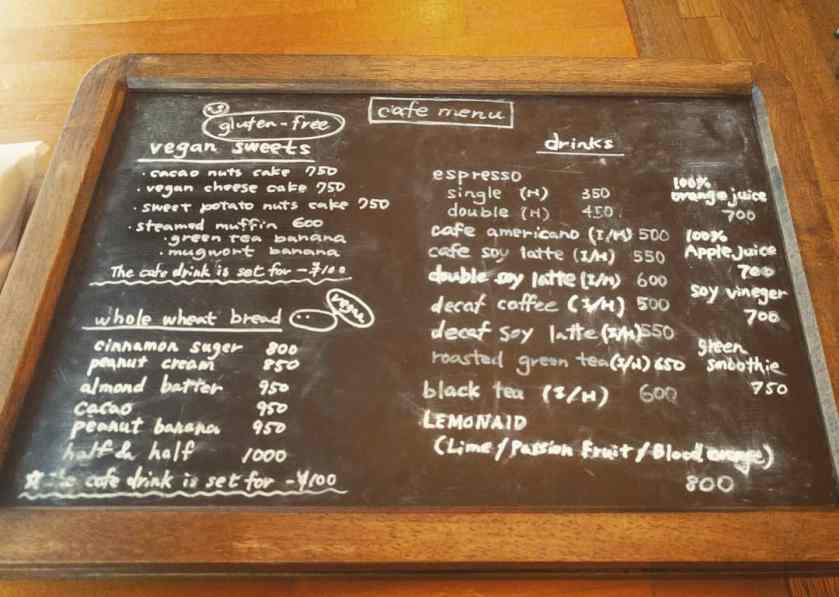 cafe menu
gluten-free
vegan sweets
・cacao nuts cake 750
・vegan cheese cake 750
・sweet potato nuts cake 750
・steamed muffin 600
・green tea banana
・mugwort banana
The cafe drink is set for -¥100
whole wheat bread
vegan
cinnamon suger 800
peanut cream 850
almond batter 950
cacao 950
peanut banana 950
half & half 1000
☆The cafe drink is set for -¥100
drinks
espresso
single (H) 350
double (H) 450
cafe americano (I/H) 500
cafe soy latte (I/H) 550
double soy latte (I/H) 600
decaf coffee (I/H) 500
decaf soy latte (I/H) 550
roasted green tea (I/H) 650
black tea (I/H) 600
LEMONAID
(Lime/Passion Fruit/Blood orange)
800
100%
orange juice
700
100%
Apple juice
700
soy vineger
700
green
smoothie
750